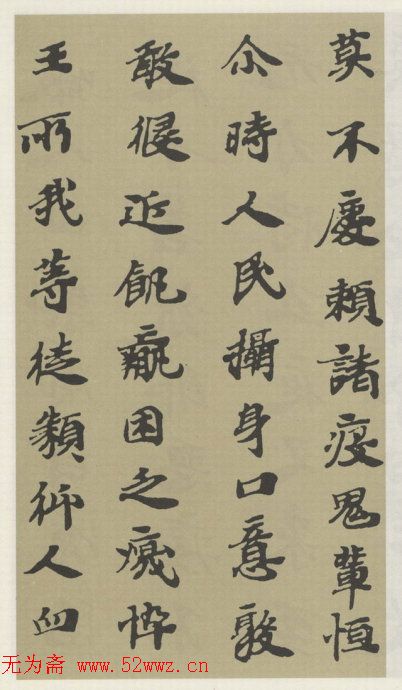 莫不慶賴諸疫鬼輩恒
尒時人民攝身口意敦
敢侵近飢羸困乏瘦悴
王所我等徒類仰人血
无为斋 www.52wwz.cn